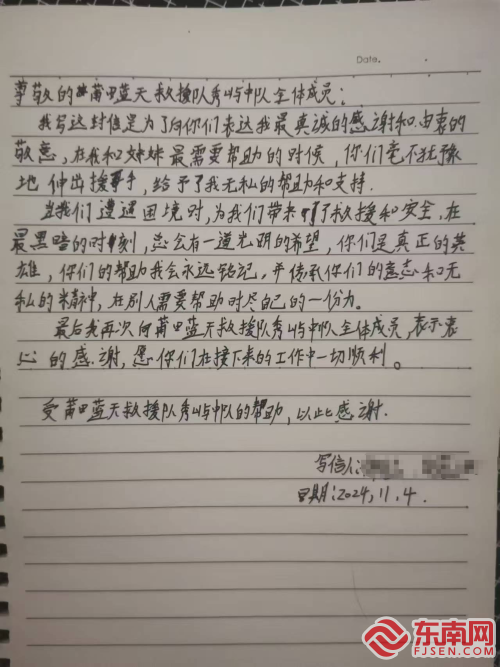 Date.
尊敬的莆田蓝天救援队秀屿中队全体成员：
我写这封信是为了向你们表达我最真诚的感谢和由衷的
敬意，在我和妹妹最需要帮助的时候，你们毫不犹豫
地伸出援手，给予了我无私的帮助和支持.
当我们遭遇困境时，为我们带来了救援和安全，在
最黑暗的时刻，总会有一道光明的希望，你们是真正的英
雄，你们的帮助我会永远铭记，并传承你们的意志和无
私的精神，在别人需要帮助时尽自己的一份力。
最后我再次向莆田蓝天救援队秀屿中队全体成员，表示衷
心的感谢，愿你们在接下来的工作中一切顺利。
受莆田蓝天救援队秀屿中队的帮助，以此感谢.
写信人：
日期：2024，11，4.
东南网
FJSEN.COM